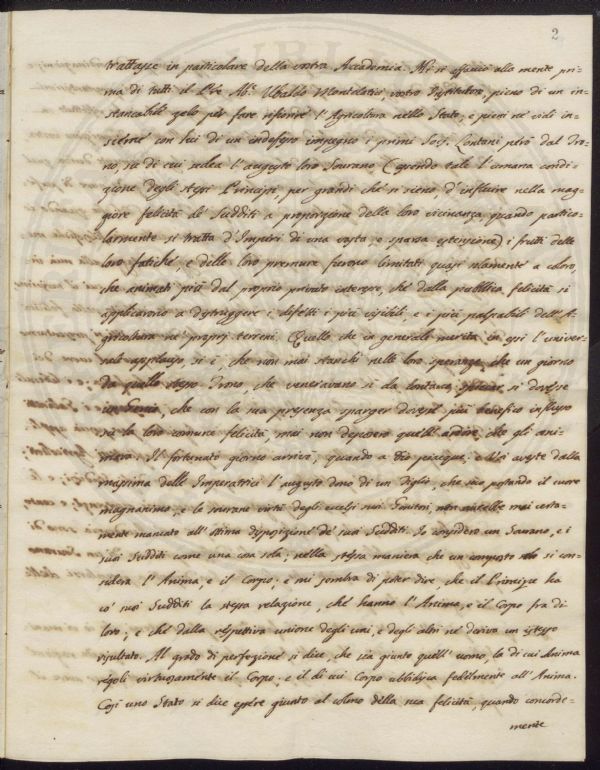 2
trattasse in particolare della vostra Accademia. Mi si affacciò alla mente pri=
ma di tutti il P're Ab.e Ubaldo Montelatici, vostro Istitutore, pieno di un in=
stancabile zelo per fare rifiorire l'Agricoltura nello Stato; e pieni ne vidi in=
sieme con lui di un indefesso impegno i primi Socj. Lontani però dal Tro=
no, su di cui sedea l'augusto loro Sovrano (essendo tale l'umana condi=
zione degli stessi Principi, per grandi che si sieno, d'influire nella mag=
giore felicità de' Sudditi a proporzione della loro vicinanza, quando partico=
larmente si tratta d'Imperi di una vasta, e sparsa estensione) i frutti delle
loro fatiche, e delle loro premure furono limitati quasi solamente a coloro,
che animati più dal proprio privato interesse, che dalla pubblica felicità si
applicarono a distruggere i difetti i più visibili, e i più palpabili dell'A=
gricoltura ne' proprj terreni. Quello che in generale merita in essi l'univer=
sale applauso, si è, che non mai stanchi nelle loro speranze, che un giorno
da quello stesso Trono, che veneravano sì da lontano si dovesse
un Genio, che con la sua presenza sparger dovesse più benefico influsso
su la loro comune felicità, mai non deposero quell'ardire, che gli ani=
mava. Il fortunato giorno arrivò, quando a Dio piacque; e Voi aveste dalla
massima delle Imperatrici l'augusto dono di un Figlio, che seco portando il cuore
magnanimo, e le sovrane virtù degli eccelsi suoi Genitori, non avrebbe mai certa=
mente mancato all'ottima disposizione de' suoi Sudditi. Io considero un Sovrano, e i
suoi Sudditi come una cosa sola; nella stessa maniera che un composto si con=
sidera l'Anima, e il Corpo; e mi sembra di poter dire che il Principe ha
co' suoi Sudditi la stessa relazione, che hanno l'Anima, e il Corpo fra di
loro; e che dalla rispettiva unione degli uni, e degli altri ne derivi un istesso
risultato. Al grado di perfezione si dice, che sia giunto quell'uomo, la di cui Anima
regoli virtuosamente il Corpo; e il di cui Corpo ubbidisca fedelmente all'Anima.
Così uno Stato si dice essere giunto al colmo della sua felicità, quando concorde=
mente